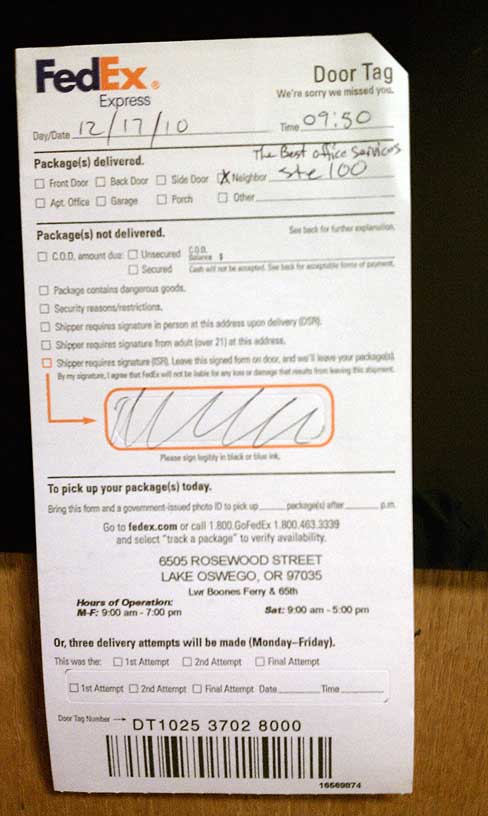 FedEx®
Express
Door Tag
We're sorry we missed you.
Day/Date 12/17/10 Time 09:50
Package(s) delivered.
The Best office Services
☐ Front Door ☐ Back Door ☐ Side Door ☒ Neighbor Ste 100
☐ Apt. Office ☐ Garage ☐ Porch ☐ Other
Package(s) not delivered. See back for further explanation.
☐ C.O.D. amount due: ☐ Unsecured C.O.D. Balance $
☐ Secured Cash will not be accepted. See back for acceptable forms of payment.
☐ Package contains dangerous goods.
☐ Security reasons/restrictions.
☐ Shipper requires signature in person at this address upon delivery (DSR).
☐ Shipper requires signature from adult (over 21) at this address.
☐ Shipper requires signature (ISR). Leave this signed form on door, and we'll leave your package(s).
By my signature, I agree that FedEx will not be liable for any loss or damage that results from leaving this shipment.
Please sign legibly in black or blue ink.
To pick up your package(s) today.
Bring this form and a government-issued photo ID to pick up ____ package(s) after ____ p.m.
Go to fedex.com or call 1.800.GoFedEx 1.800.463.3339
and select "track a package" to verify availability.
6505 ROSEWOOD STREET
LAKE OSWEGO, OR 97035
Lwr Boones Ferry & 65th
Hours of Operation:
M-F: 9:00 am - 7:00 pm Sat: 9:00 am - 5:00 pm
Or, three delivery attempts will be made (Monday–Friday).
This was the: ☐ 1st Attempt ☐ 2nd Attempt ☐ Final Attempt
☐ 1st Attempt ☐ 2nd Attempt ☐ Final Attempt Date ____ Time ____
Door Tag Number → DT1025 3702 8000
16569874